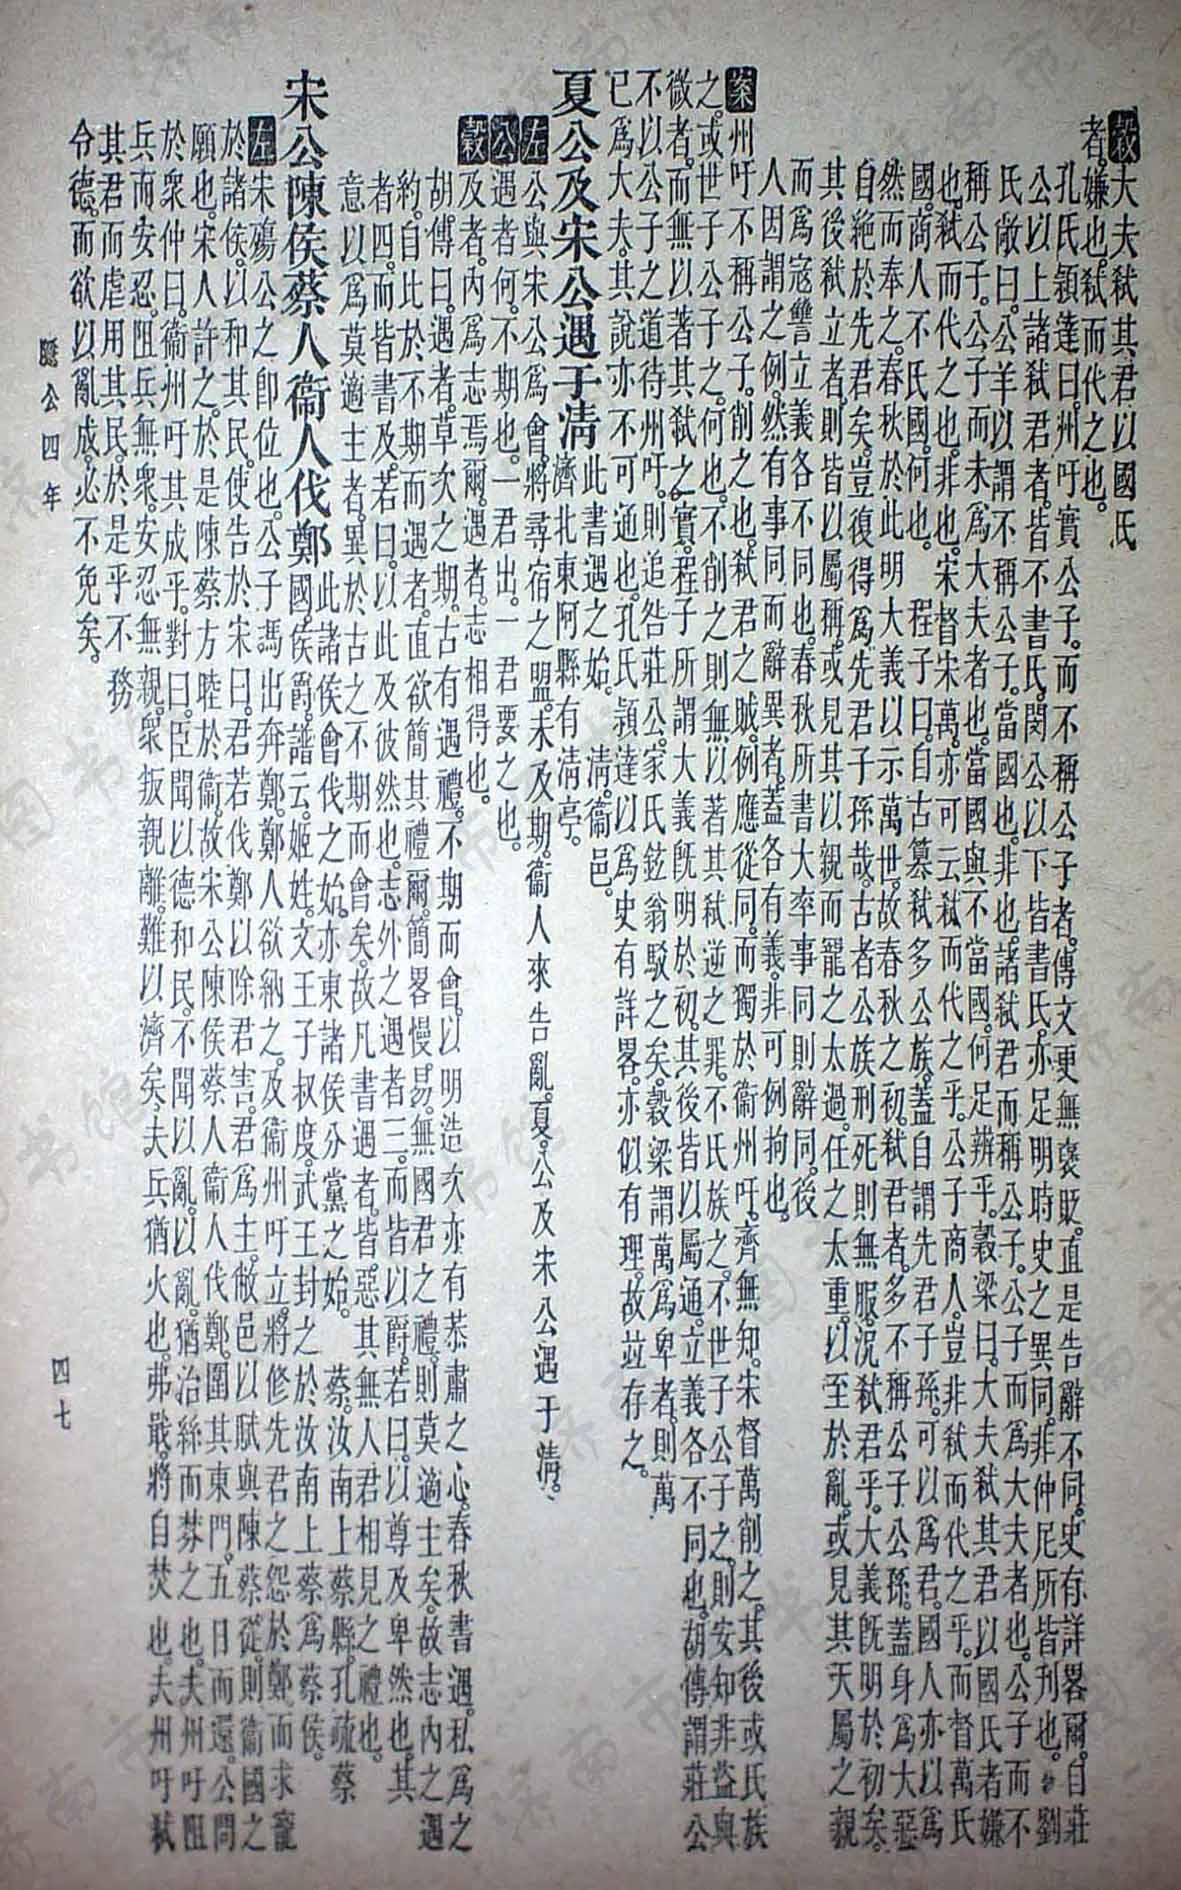 穀大夫弑其君以國氏
者。嫌也。弑而代之也。
孔氏穎達曰。州吁實公子。而不稱公子者。傳文更無褒貶。直是告辭不同。史有詳畧爾。自莊
公以上諸弑君者。皆不書氏。閔公以下皆書氏。亦足明時史之異同。非仲尼所皆刋也。 劉
氏敞曰。公羊以謂不稱公子。當國也。非也。諸弑君而稱公子。公子而爲大夫者也。公子而不
稱公子。公子而未爲大夫者也。當國與不當國。何足辨乎。穀梁曰。大夫弑其君以國氏者嫌
也。弑而代之也。非也。宋督宋萬。亦可云弑而代之乎。公子商人。豈非弑而代之乎。而督萬氏
國。商人不氏國。何也。 程子曰。自古篡弑多公族。蓋自謂先君子孫。可以爲君。國人亦以爲
然而奉之。春秋於此明大義以示萬世。故春秋之初。弑君者。多不稱公子公孫。蓋身爲大惡
自絶於先君矣。豈復得爲先君子孫哉。古者公族刑死則無服。況弑君乎。大義旣明於初矣。
其後弑立者。則皆以屬稱。或見其以親而寵之太過。任之太重。以至於亂。或見其天屬之親
而爲寇讐。立義各不同也。春秋所書大率事同則辭同。後
人因謂之例。然有事同而辭異者。蓋各有義。非可例拘也。
案州吁不稱公子。削之也。弑君之賊。例應從同。而獨於衞州吁。齊無知。宋督萬削之。其後或氏族
之。或世子公子之。何也。不削之則無以著其弑逆之罪。不氏族之。不世子公子之。則安知非盜與
微者。而無以著其弑之實。程子所謂大義旣明於初。其後皆以屬通。立義各不同也。胡傳謂莊公
不以公子之道待州吁。則追咎莊公。家氏鉉翁駁之矣。穀梁謂萬爲卑者。則萬
已爲大夫。其說亦不可通也。孔氏穎達以爲史有詳畧。亦似有理。故竝存之。
夏公及宋公遇于淸此書遇之始。 淸。衞邑。
濟北東阿縣有淸亭。
左公與宋公爲會。將尋宿之盟。未及期。衞人來告亂。夏。公及宋公遇于淸。
公遇者何。不期也。一君出。一君要之也。
穀及者。內爲志焉爾。遇者。志相得也。
胡傳曰。遇者。草次之期。古有遇禮。不期而會。以明造次亦有恭肅之心。春秋書遇。私爲之
約。自比於不期而遇者。直欲簡其禮爾。簡畧慢易。無國君之禮。則莫適主矣。故志內之遇
者四。而皆書及。若曰。以此及彼然也。志外之遇者三。而皆以爵。若曰。以尊及卑然也。其
意以爲莫適主者。異於古之不期而會矣。故凡書遇者。皆惡其無人君相見之禮也。
宋公陳侯蔡人衞人伐鄭此諸侯會伐之始。亦東諸侯分黨之始。 蔡。汝南上蔡縣。孔疏蔡
國。侯爵。譜云。姬姓。文王子叔度。武王封之於汝南上蔡爲蔡侯。
左宋殤公之卽位也。公子馮出奔鄭。鄭人欲納之。及衞州吁立。將修先君之怨於鄭而求寵
於諸侯。以和其民。使告於宋曰。君若伐鄭以除君害。君爲主。敝邑以賦與陳蔡從。則衞國之
願也。宋人許之。於是陳蔡方睦於衞。故宋公陳侯蔡人衞人伐鄭。圍其東門。五日而還。公問
於衆仲曰。衞州吁其成乎。對曰。臣聞以德和民。不聞以亂。以亂。猶治絲而棼之也。夫州吁阻
兵而安忍。阻兵無衆。安忍無親。衆叛親離。難以濟矣。夫兵猶火也。弗戢。將自焚也。夫州吁弑
其君而虐用其民。於是乎不務
令德。而欲以亂成。必不免矣。
隱公四年
四七